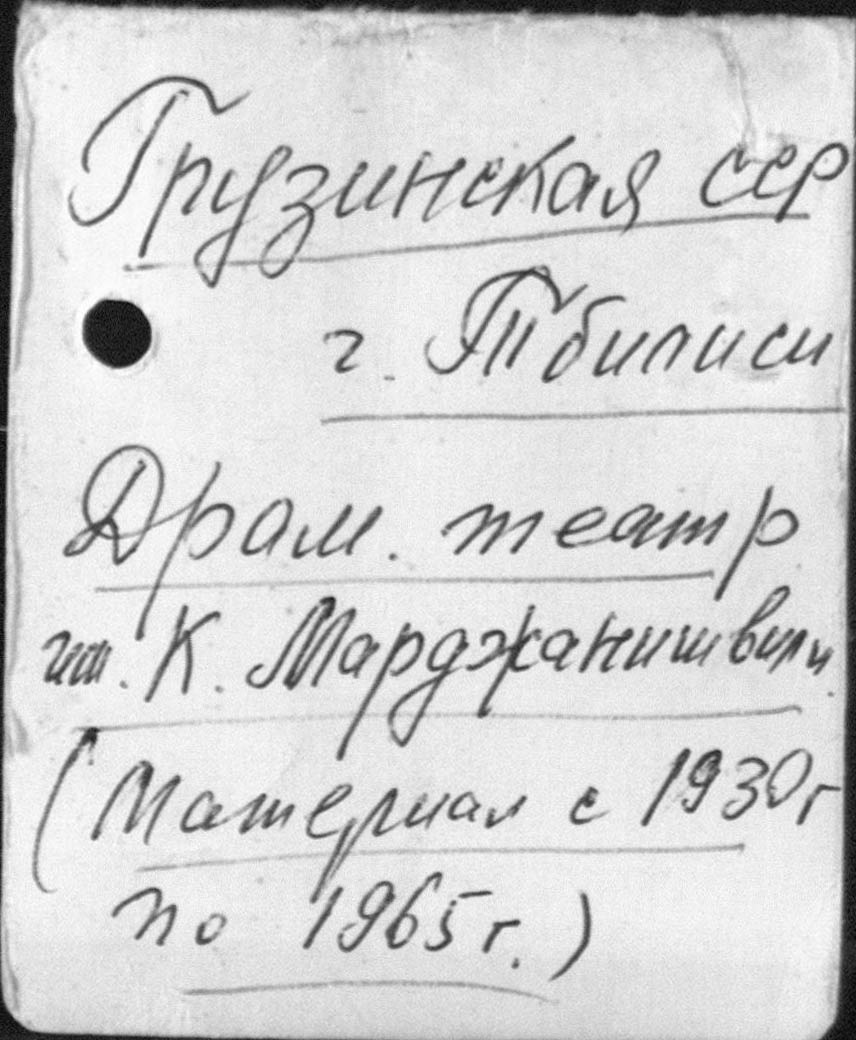 Грузинская ССР
г. Тбилиси
Драм. театр
им. К. Марджанишвили
(Материал с 1930г
по 1965г.)